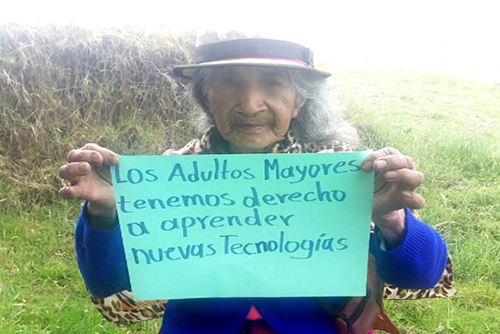 Los Adultos Mayores
tenemos derecho
a aprender
nuevas Tecnologías